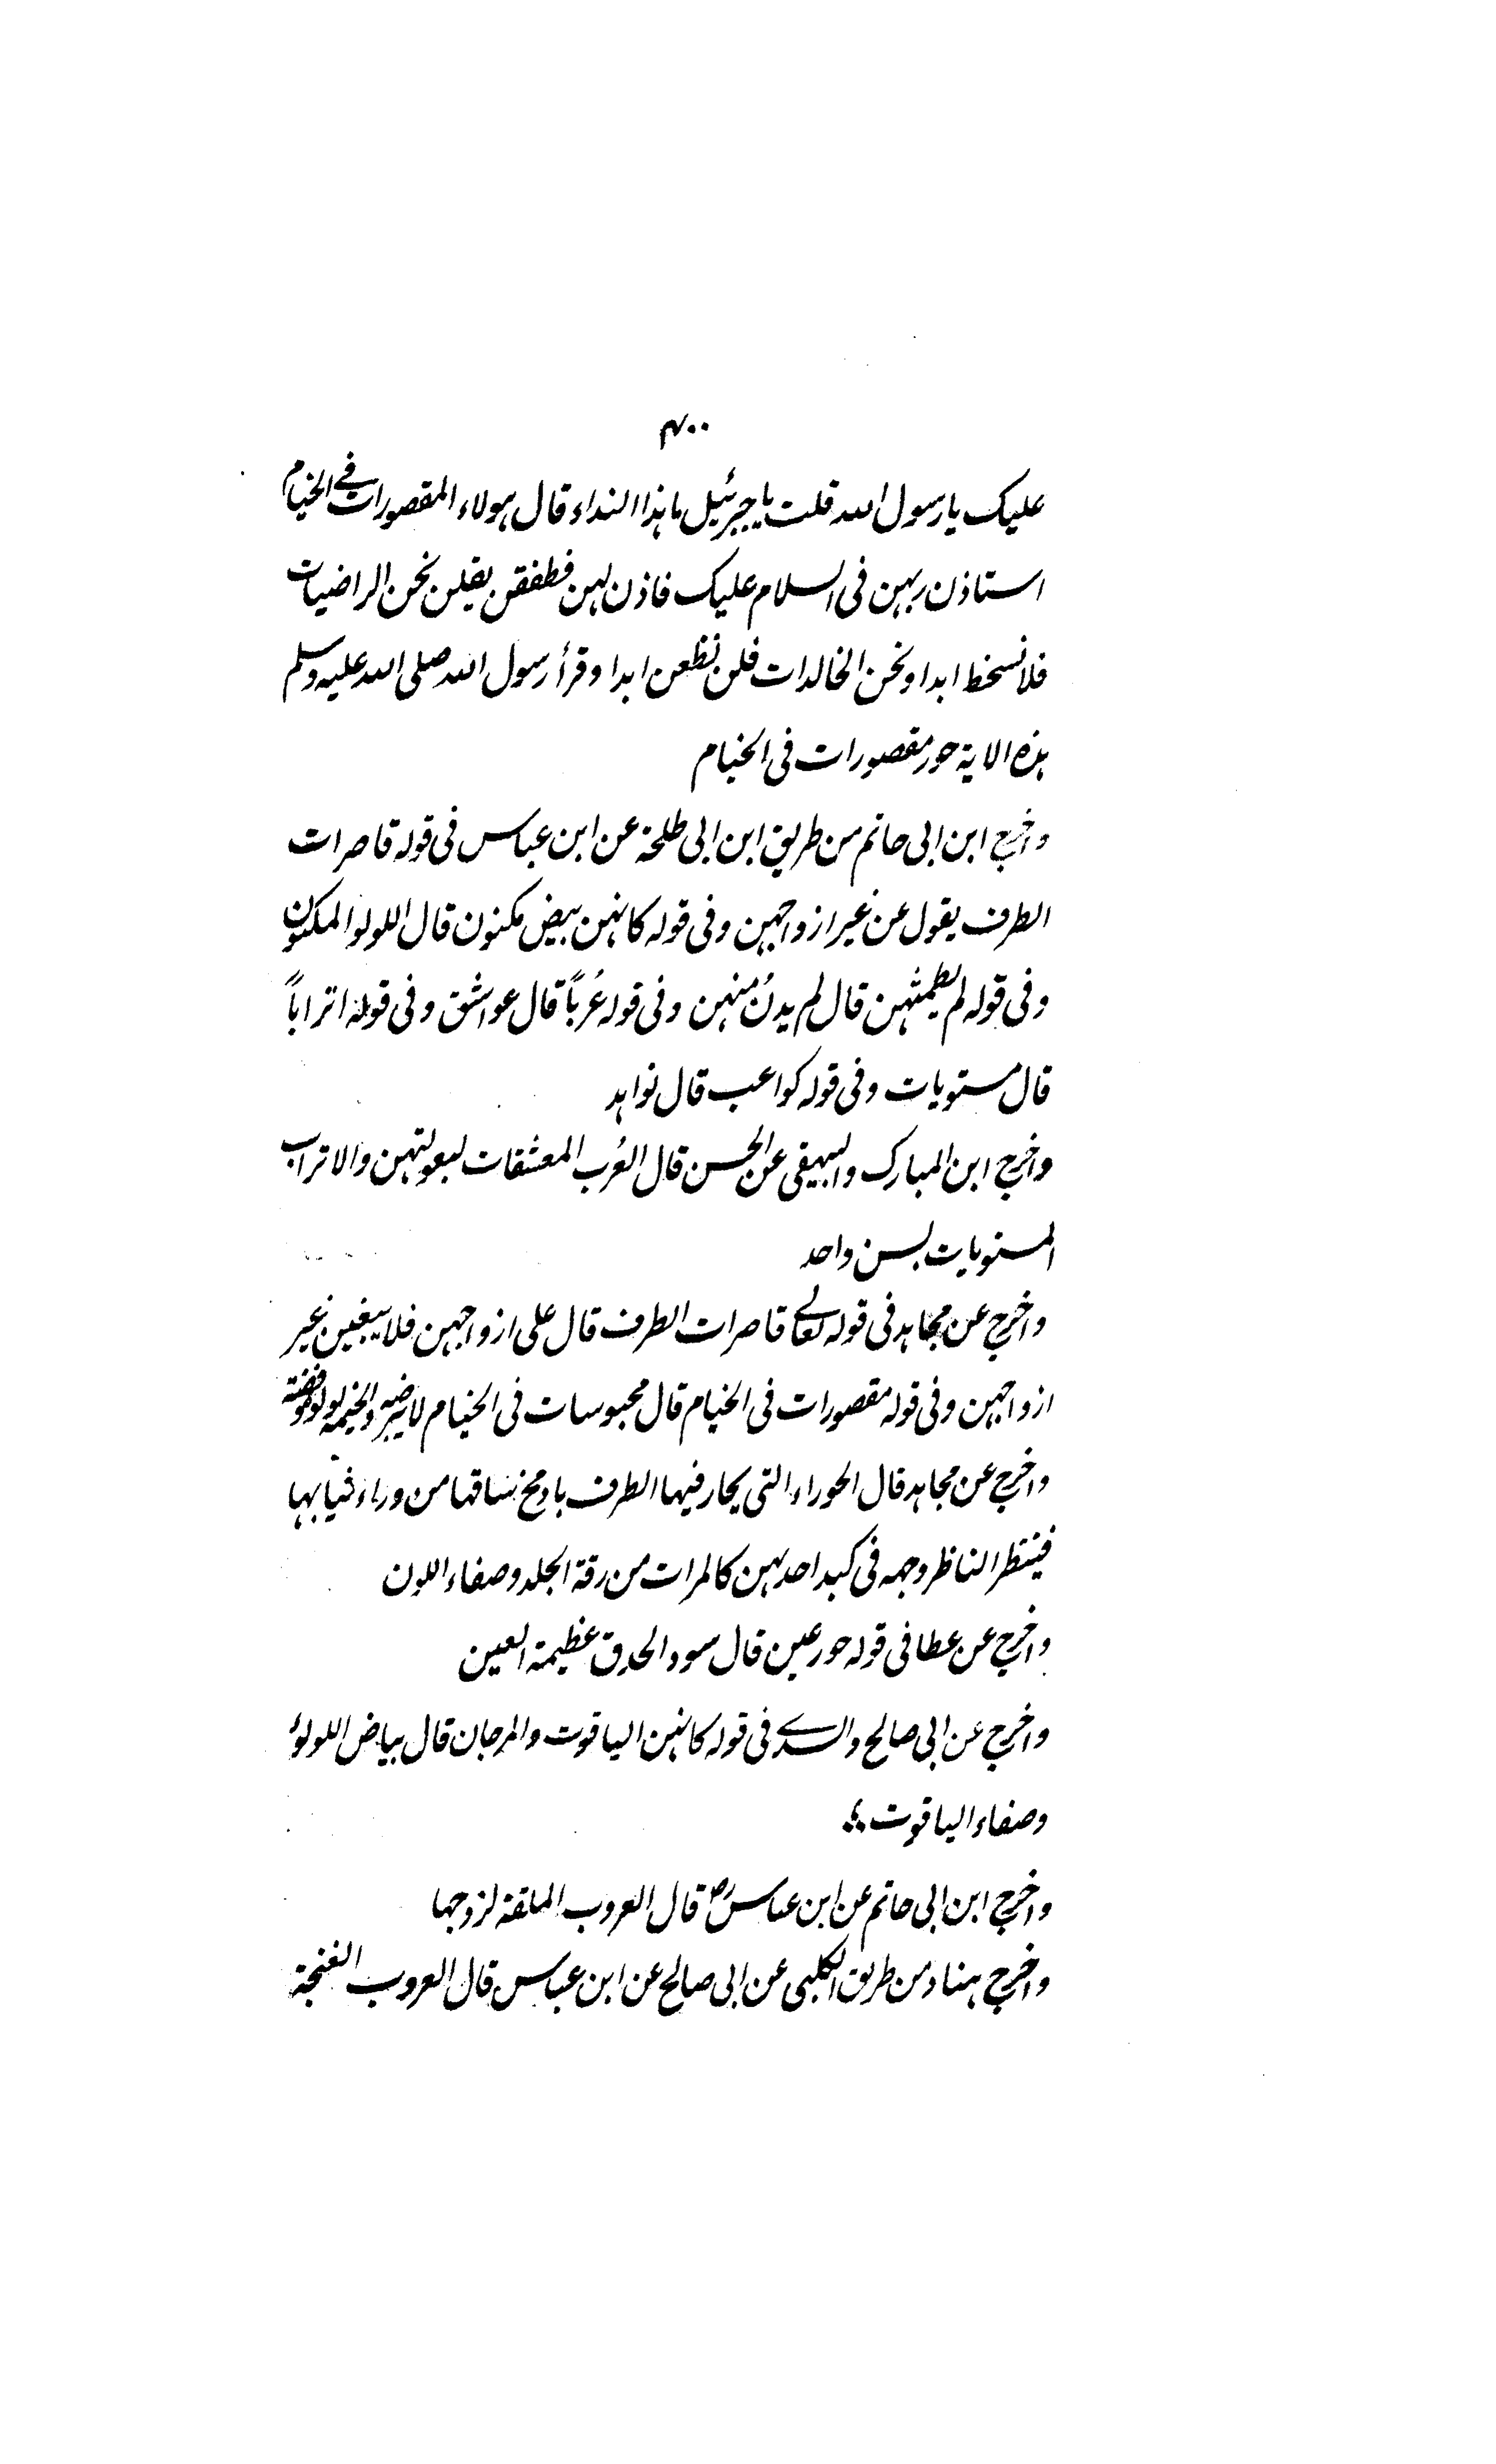 ۴۰۰
علیک یا رسول الله قلت یا جبرئیل ما ہذا النداء قال ہولاء المقصورات فے الخیام
استاذن ربہن فی السلام علیک فاذن لہن فطفقن یقلن نحن الراضیات
فلا نسخط ابدا ونحن الخالدات فلن نظعن ابدا وقرأ رسول الله صلی الله علیہ وسلم
ہذہ الایة حور مقصورات فی الخیام
واخرج ابن ابی حاتم من طریق ابن ابی طلحة عن ابن عباس فی قولہ قاصرات
الطرف یقول عن غیر ازواجہن وفی قولہ کانہن بیض مکنون قال اللولو المکنون
وفی قولہ لم یطمثہن قال لم یدنُ منہن وفی قولہ عُرباً قال عواشق وفی قولہ اتراباً
قال مستویات وفی قولہ کواعب قال نواہد
واخرج ابن المبارک والبیہقی عن الحسن قال العُرب المعشقات لبعولتہن والاتراب
المستویات بسن واحد
واخرج عن مجاہد فی قولہ تعالے قاصرات الطرف قال علی ازواجہن فلا یبغین غیر
ازواجہن وفی قولہ مقصورات فی الخیام قال محبوسات فی الخیام لا والخیمہ لولو وفضة
واخرج عن مجاہد قال الحوراء التی یحار فیہا الطرف بادمخ ساقہا من وراء ثیابہا
فینظر الناظر وجہہ فی کبد احدیہن کالمرات من رقة الجلد وصفاء اللون
واخرج عن عطا فی قولہ حور عین قال سود الحدق عظیمة العین
واخرج عن ابی صالح والسدے فی قولہ کانہن الیاقوت والمرجان قال بیاض اللولؤ
وصفاء الیاقوت
واخرج ابن ابی حاتم عن ابن عباسؓ قال العروب الملقة لزوجہا
واخرج ہناد من طریق الکلبی عن ابی صالح عن ابن عباس قال العروب الغنجة